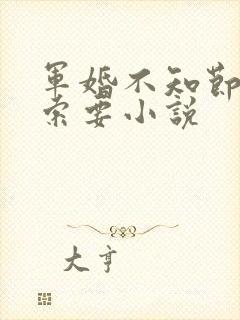 軍婚不知節
索要小說
大亨